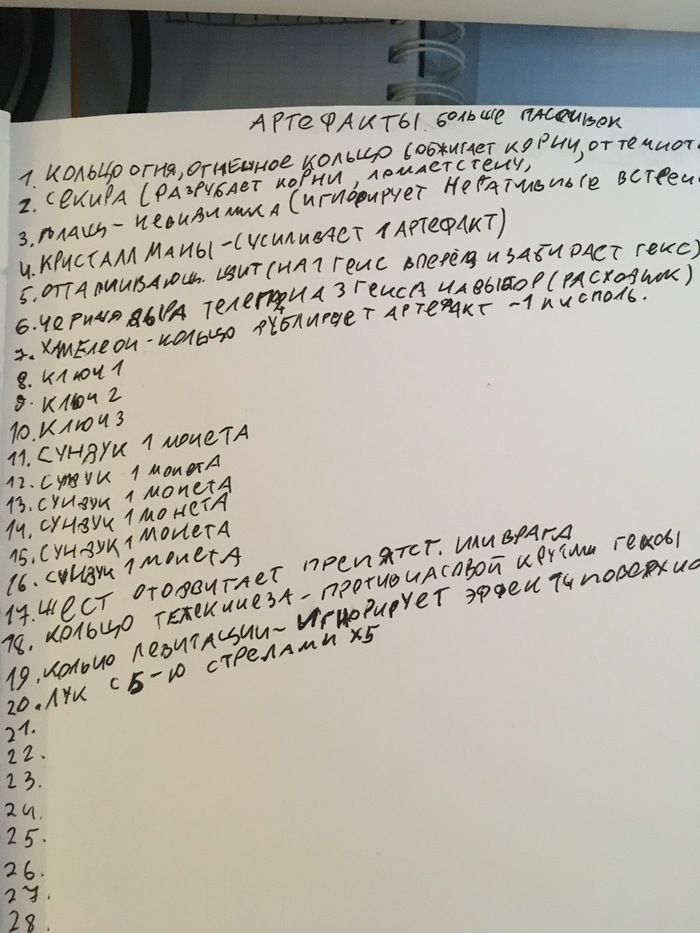 АРТЕФАКТЫ. БОЛЬШЕ ПАССИВОК
1. КОЛЬЦО ОГНЯ, ОГНЕННОЕ КОЛЬЦО (ОБЖИГАЕТ КОРНИ, ОТ ТЕМНОТ
2. СЕКИРА (РАЗРУБАЕТ КОРНИ, ЛОМАЕТ СТЕНУ,
3. ПЛАЩ - НЕВИДИМКА (ИГНОРИРУЕТ НЕГАТИВНЫЕ ВСТРЕЧ
4. КРИСТАЛЛ МАНЫ - (УСИЛИВАЕТ 1 АРТЕФАКТ)
5. ОТТАЛКИВАЮЩ. ЩИТ (НА 1 ГЕКС ВПЕРЁД И ЗАБИРАЕТ ГЕКС)
6. ЧЕРНАЯ ДЫРА ТЕЛЕПОРТ НА 3 ГЕКСА НА ВЫБОР (РАСХОДНИК)
7. ХАМЕЛЕОН - КОЛЬЦО ДУБЛИРУЕТ АРТЕФАКТ - 1 ИСПОЛЬ.
8. КЛЮЧ 1
9. КЛЮЧ 2
10. КЛЮЧ 3
11. СУНДУК 1 МОНЕТА
12. СУНДУК 1 МОНЕТА
13. СУНДУК 1 МОНЕТА
14. СУНДУК 1 МОНЕТА
15. СУНДУК 1 МОНЕТА
16. СУНДУК 1 МОНЕТА
17. ЖЕСТ ОТОДВИГАЕТ ПРЕПЯТСТ. ИЛИ ВРАГА
18. КОЛЬЦО ТЕЛЕКИНЕЗА - ПРОТИВ ЧАСОВОЙ КРУТИМ ГЕКСЫ
19. КОЛЬЦО ЛЕВИТАЦИИ - ИГНОРИРУЕТ ЭФФЕКТЫ ПОВЕРХНО
20. ЛУК С 5-Ю СТРЕЛАМИ X5
21.
22.
23.
24.
25.
26.
27.
28.